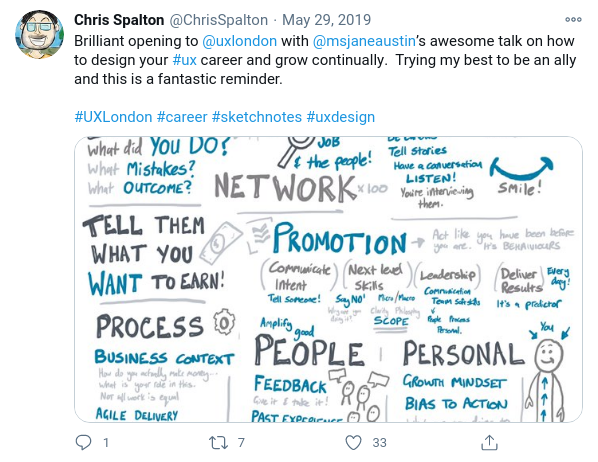 Chris Spalton @ChrisSpalton · May 29, 2019
Brilliant opening to @uxlondon with @msjaneaustin's awesome talk on how
to design your #ux career and grow continually.  Trying my best to be an ally
and this is a fantastic reminder.
#UXLondon #career #sketchnotes #uxdesign
What did YOU DO?
What Mistakes?
What OUTCOME?
JOB
& the people!
NETWORK x100
Tell Stories
Have a conversation
LISTEN!
You're interviewing
them.
SMILE!
TELL THEM
WHAT YOU
WANT TO EARN!
PROMOTION
Act like you have been before
you are. It's BEHAVIOURS
(Communicate
Intent
Tell someone!
(Next level
Skills
Say NO!
Micro/Macro
SCOPE
(Leadership)
Communication
Team
People Process
Personal.
(Deliver
Results
Every
day!
It's a predictor
PROCESS
BUSINESS CONTEXT
How do you actually make money...
what is your role in this..
Not all work is equal
AGILE DELIVERY
Amplify
good
PEOPLE
FEEDBACK
Give it & take it!
PAST EXPERIENCE
PERSONAL
GROWTH MINDSET
BIAS TO ACTION
You
1
7
33